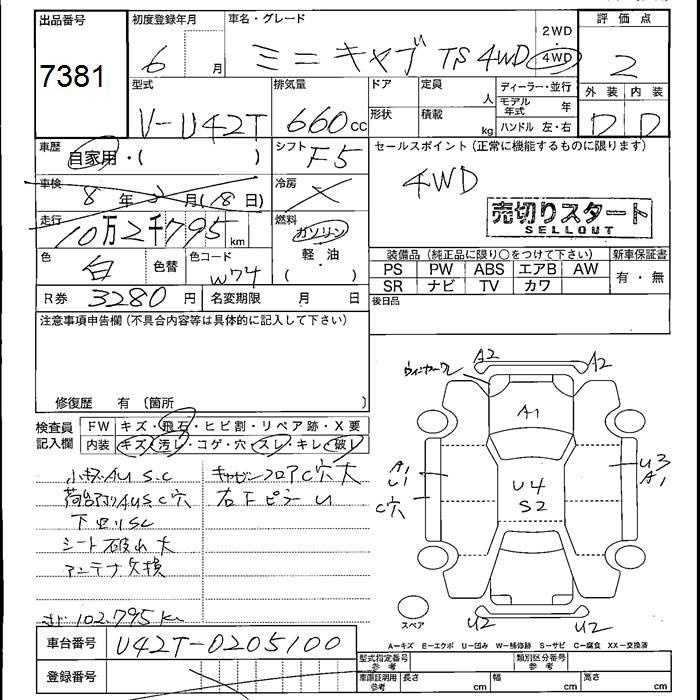 出品番号
7381
初度登録年月
6 月
車名・グレード
ミニキャブ TS 4WD
2WD
4WD
評価点
2
外装 内装
D D
型式
V-U42T
排気量
660 cc
ドア
形状
定員
人
積載
kg
ディーラー・並行
モデル年式 年
ハンドル 左・右
車歴
自家用・( )
シフト
F5
セールスポイント (正常に機能するものに限ります)
4WD
売切りスタート
SELLOUT
車検
8 年 月 (18日)
冷房
走行
10万2千795 km
燃料
ガソリン
軽・油
( )
色
白
色替
色コード
W74
装備品 (純正品に限り○をつけて下さい)
新車保証書
PS PW ABS エアB AW
有・無
SR ナビ TV カワ
R券 3280 円
名変期限 月 日
後日品
注意事項申告欄 (不具合内容等は具体的に記入して下さい)
修復歴 有 〔箇所 〕
検査員記入欄
FW キズ・飛石・ヒビ割・リペア跡・X要
内装 キズ・汚レ・コゲ・穴・スレ・キレ・破レ
小キズAU S.C
キャビンフロアC穴大
AUS.C穴
右下ピラーU
下回りSC
シート破れ大
アンテナ欠損
102.795 km
ウィンカーワレ
A2
A2
A1
A1
U1
C穴
U4
S2
U3
A1
U2
U2
スペア
A=キズ E=エクボ U=凹み W=補修跡 S=サビ C=腐食 XX=交換済
車台番号
U42T-0205100
登録番号
型式指定番号 参考
類別区分番号 参考
車庫証明用 参考
長さ cm
幅 cm
高さ cm